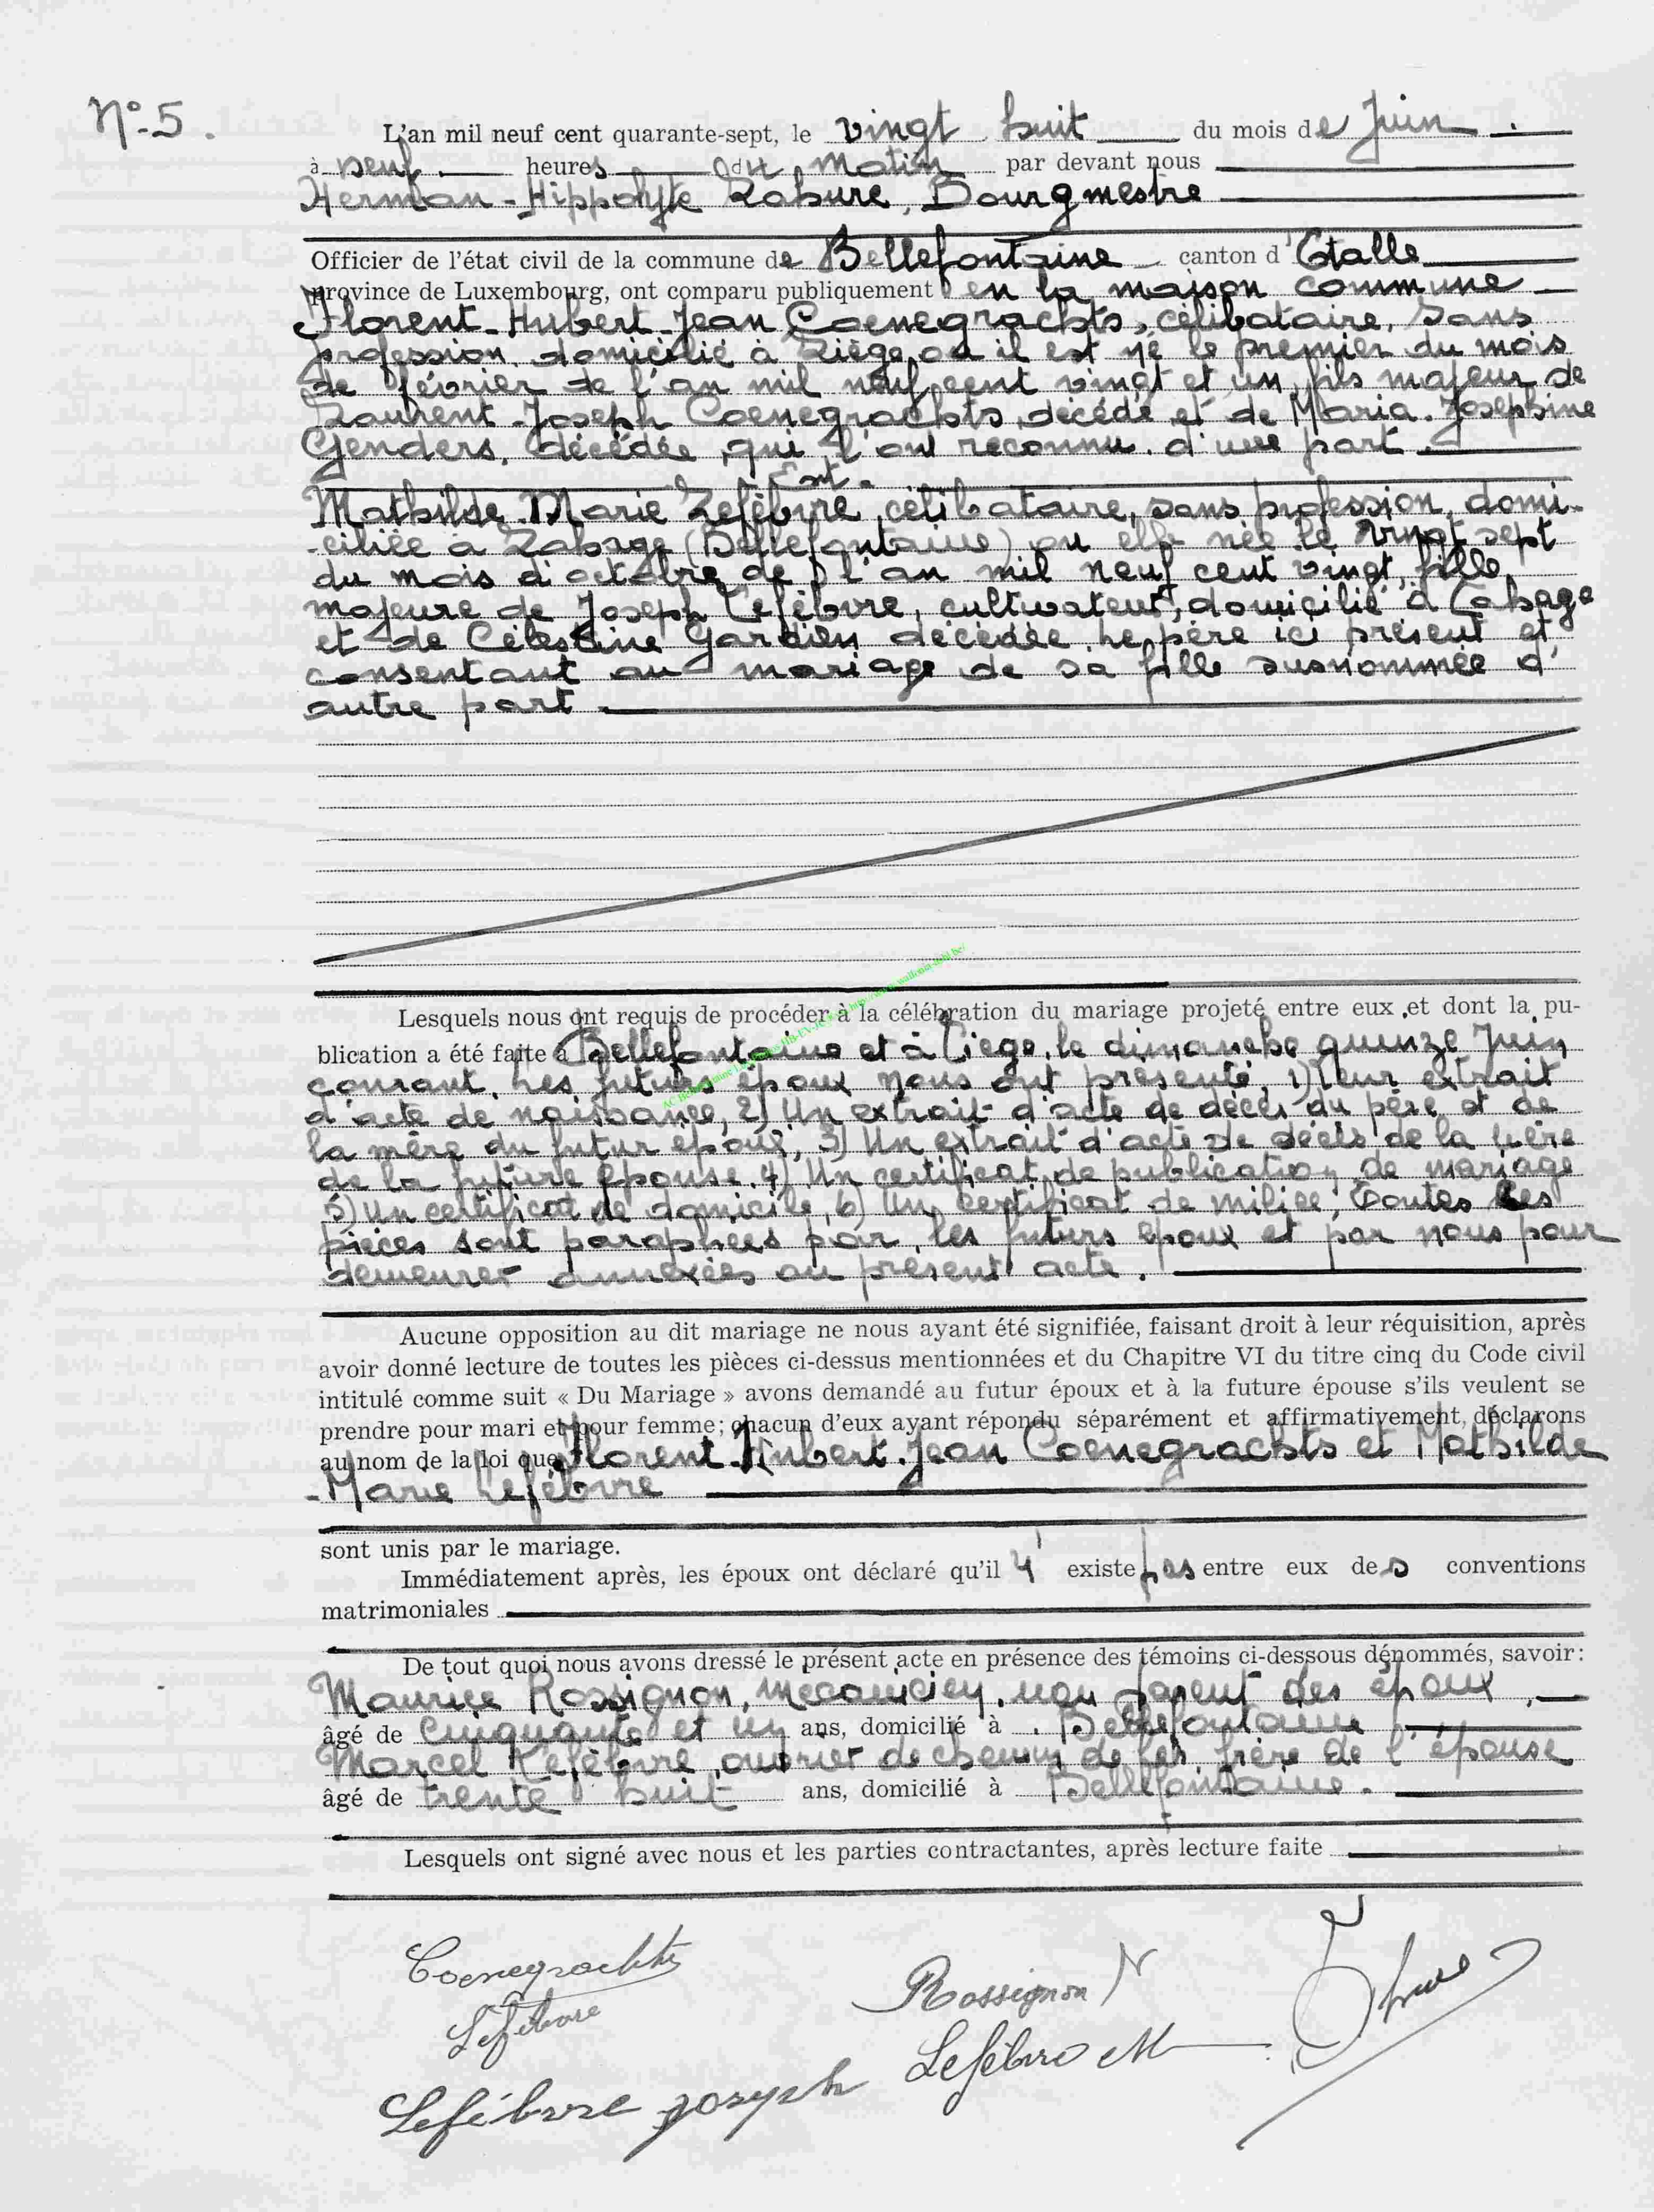 N° 5.
L'an mil neuf cent quarante-sept, le vingt huit du mois de Juin.
à neuf heures du matin par devant nous
Herman-Hippolyte Labure, Bourgmestre
Officier de l'état civil de la commune de Bellefontaine canton d'Etalle
province de Luxembourg, ont comparu publiquement en la maison commune
Florent-Hubert-Jean Coenegrachts, célibataire, sans
profession domicilié à Liège où il est né le premier du mois
de février de l'an mil neuf cent vingt et un, fils majeur de
Laurent-Joseph Coenegrachts, décédé et de Maria-Josephine
Genders, décédée, qui l'ont reconnu. d'une part
Ent.
Mathilde-Marie Lefèbvre, célibataire, sans profession, domi-
-ciliée à Lahage (Bellefontaine) ou elle née le vingt sept
du mois d'octobre de l'an mil neuf cent vingt, fille
majeure de Joseph Lefèbvre, cultivateur, domicilié à Lahage
et de Célestine Gardien décédée. Le père ici présent et
consentant au mariage de sa fille susnommée d'
autre part
Lesquels nous ont requis de procéder à la célébration du mariage projeté entre eux et dont la pu-
blication a été faite à Bellefontaine et à Liège, le dimanche quinze Juin
courant. Les futurs époux nous ont présenté, 1) leur extrait
d'acte de naissance, 2) Un extrait d'acte de décès du père et de
la mère du futur époux, 3) Un extrait d'acte de décès de la mère
de la future épouse. 4) Un certificat de publication de mariage
5) Un certificat de domicile, 6) Un certificat de milice; Toutes les
pièces sont paraphées par les futurs époux et par nous pour
demeurer annexées au présent acte.
Aucune opposition au dit mariage ne nous ayant été signifiée, faisant droit à leur réquisition, après
avoir donné lecture de toutes les pièces ci-dessus mentionnées et du Chapitre VI du titre cinq du Code civil
intitulé comme suit « Du Mariage » avons demandé au futur époux et à la future épouse s'ils veulent se
prendre pour mari et pour femme; chacun d'eux ayant répondu séparément et affirmativement, déclarons
au nom de la loi que Florent-Hubert-Jean Coenegrachts et Mathilde
-Marie Lefèbvre
sont unis par le mariage.
Immédiatement après, les époux ont déclaré qu'il n' existe pas entre eux des conventions
matrimoniales
De tout quoi nous avons dressé le présent acte en présence des témoins ci-dessous dénommés, savoir:
Maurice Rossignon, mécanicien, non parent des époux,
âgé de cinquante et un ans, domicilié à Bellefontaine
Marcel Lefèbvre, ouvrier de chemin de fer, frère de l'épouse
âgé de trente huit ans, domicilié à Bellefontaine.
Lesquels ont signé avec nous et les parties contractantes, après lecture faite
Coenegrachts
Lefèbvre
Rossignon
Lefèbvre M
Lefèbvre Joseph